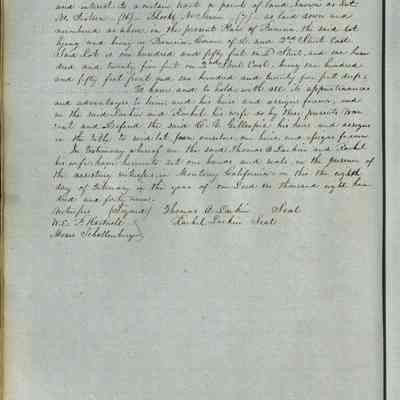 and interest to a certain tract or parcel of land known as Lot
No. Sixteen (16) Block No. Seven (7) as laid down and
numbered as above in the present Plan of Benicia the said lot
being and lying in Benicia Corner of D. and 2nd Street East
Said Lot is one hundred and fifty feet on D Street, and one hun
dred and twenty five feet on 2nd Street East, being one hundred
and fifty feet front and one hundred and twenty five feet deep.
To have and to hold with all its appurtenances
and advantages to him and his heirs and assigns forever, and
we the said Larkin and Rachel his wife so by these presents War
rant and Defend the said C. V. Gillespie, his heirs and assigns
in the Title to said lot from ourselves our heirs and assigns forever
In testimony whereof we the said Thomas O. Larkin and Rachel
his wife have hereunto set our hands and seals in the presence of
the assisting witnesses in Monterey California on this the eighth
day of February in the year of our Lord one thousand eight hun
dred and forty nine.
Witnesses (Signed) Thomas O. Larkin Seal
W. E. P. Hartnell Rachel Larkin Seal
Moses Schallenberger